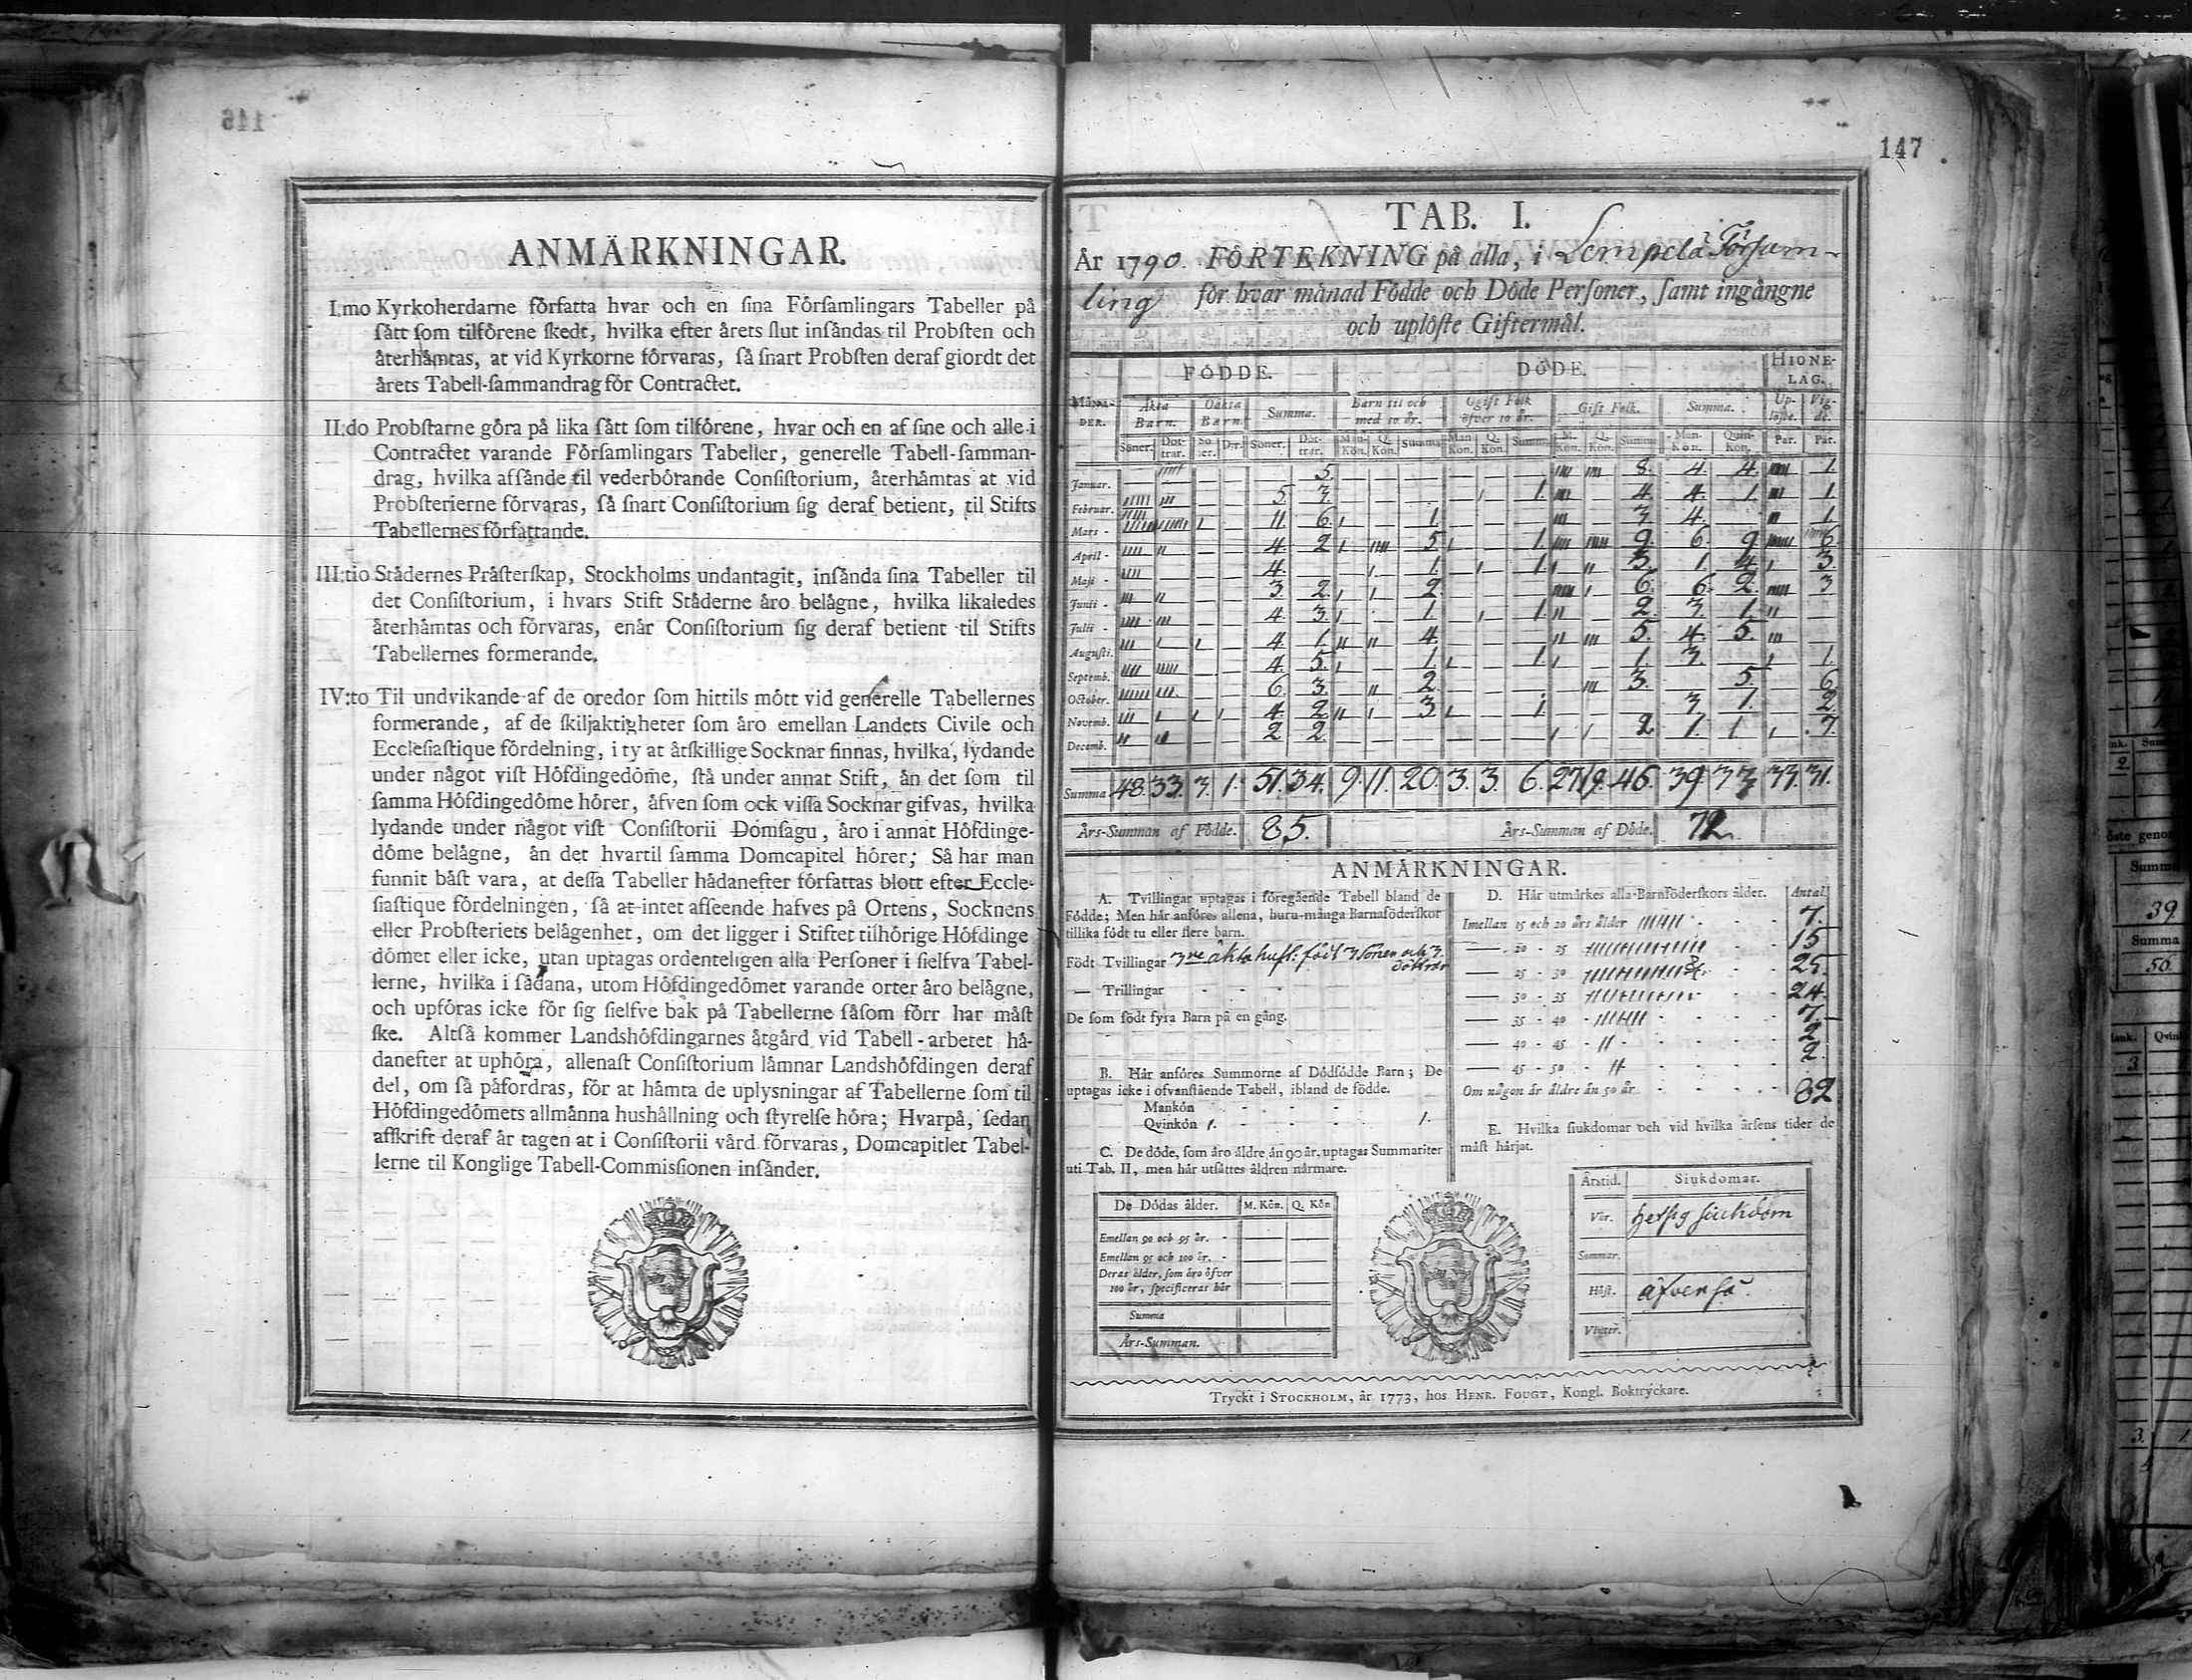 146
ANMÄRKNINGAR.
I:mo Kyrkoherdarne författa hvar och en sina Församlingars Tabeller på
sått som tilförene skedt, hvilka efter årets slut insåndas til Probsten och
återhåmtas, at vid Kyrkorne förvaras, så snart Probsten deraf giordt det
årets Tabell-sammandrag för Contractet.
II:do Probstarne göra på lika sått som tilförene, hvar och en af sine och alle i
Contractet varande Församlingars Tabeller, generelle Tabell-samman-
drag, hvilka afsånde til vederbörande Consistorium, återhåmtas at vid
Probsterierne förvaras, så snart Consistorium sig deraf betient, til Stifts
Tabellernes författande.
III:tio Städernes Pråsterskap, Stockholms undantagit, insånda sina Tabeller til
det Consistorium, i hvars Stift Ståderne åro belågne, hvilka likaledes
återhåmtas och förvaras, enår Consistorium sig deraf betient til Stifts
Tabellernes formerande.
IV:to Til undvikande af de oredor som hittils mött vid generelle Tabellernes
formerande, af de skiljaktigheter som åro emellan Landets Civile och
Ecclesiastique fördelning, i ty at åtskillige Socknar finnas, hvilka, lydande
under något vist Höfdingedöme, stå under annat Stift, ån det som til
samma Höfdingedöme hörer, åfven som ock vissa Socknar gifvas, hvilka
lydande under något vist Consistorii Domsagu, åro i annat Höfdinge-
döme belågne, ån det hvartil samma Domcapitel hörer; Så har man
funnit båst vara, at dessa Tabeller hådanefter författas blott efter Eccle-
siastique fördelningen, så at intet afseende hafves på Ortens, Socknens
eller Probsteriets belågenhet, om det ligger i Stiftet tilhörige Höfdinge
dömet eller icke, utan uptagas ordenteligen alla Personer i sielfva Tabel-
lerne, hvilka i sådana, utom Höfdingedömet varande orter åro belågne,
och upföras icke för sig sielfve bak på Tabellerne såsom förr har måst
ske. Altså kommer Landshöfdingarnes åtgård vid Tabell-arbetet hå-
danefter at uphöra, allenast Consistorium låmnar Landshöfdingen deraf
del, om så påfordras, för at håmta de uplysningar af Tabellerne som til
Höfdingedömets allmånna hushållning och styrelse höra; Hvarpå, sedan
afskrift deraf år tagen at i Consistorii vård förvaras, Domcapitlet Tabel-
lerne til Konglige Tabell-Commissionen insånder.
147
TAB. I.
År 1790. FÖRTEKNING på alla, i Lempelä Församling
för hvar månad Födde och Döde Personer, samt ingångne
och uplöste Giftermål.
FÖDDE. DÖDE. HIONE-LAG.
MÅNA-DER. Åkta Barn. Oåkta Barn. Summa. Barn til och med 10 år. Ogift Folk öfver 10 år. Gift Folk. Summa. Up-löste. Vig-de.
Söner. Döt-trar. Sö-ner. D:r. Söner. Döt-trar. Man-Kön. Q. Kön. Summa Man Kön. Q. Kön. Summa M. Kön. Q. Kön. Summa Man-Kön. Quin-Kön. Par. Par.
Januar. 5. 8. 4. 4. 1.
Februar. 5. 3. 1. 4. 4. 1. 1.
Mars - 11 6. 1. 3. 4. 1.
April - 4. 2 5. 1. 9. 6. 9. 6.
Maji - 4. 1. 1. 3. 1. 4. 3.
Junii - 3 2. 2. 6. 6. 2. 3
Julii - 4. 3. 1. 1. 2. 3. 1.
Augusti. 4. 1. 4. 5. 4. 5.
Septemb. 4. 5. 1. 1. 1. 3. 1.
October. 6. 3. 2. 3. 5. 6.
Novemb. 4. 2. 3. 1. 3. 1. 2.
Decemb. 2 2. 2 1. 1. 7.
Summa 48. 33. 3. 1. 51. 34. 9. 11. 20. 3. 3. 6. 27. 19. 46. 39. 33 33. 31.
Års-Summan af Födde. 85. Års-Summan af Döde. 72.
ANMÄRKNINGAR.
A. Tvillingar uptagas i föregående Tabell bland de
Födde; Men hår anföres allena, huru många Barnaföderskor
tillika födt tu eller flere barn.
Födt Tvillingar 3ne åkta hust: födt 3 Söner och 3. Döttrar
— Trillingar - - -
De som födt fyra Barn på en gång.
B. Hår anföres Summorne af Dödfödde Barn; De
uptagas icke i ofvanstående Tabell, ibland de födde.
Mankön - - -
Qvinkön 1. - - - 1.
C. De döde, som åro åldre ån 90 år, uptagas Summariter
uti Tab. II, men hår utsåttes åldren nårmare.
De Dödas ålder. M. Kön. Q. Kön
Emellan 90 och 95 år. -
Emellan 95 och 100 år. -
Deras ålder, som åro öfver
100 år, specificeras hår
Summa
Års-Summan.
D. Hår utmårkes alla Barnföderskors ålder. Antal.
Imellan 15 och 20 års ålder 7.
— 20 - 25 15
— 25 - 30 25.
— 30 - 35 24.
— 35 - 40 7.
— 40 - 45 2.
— 45 - 50 2.
Om någon år åldre ån 50 år - 82
E. Hvilka siukdomar och vid hvilka årsens tider de
måst hårjat.
Årstid. Siukdomar.
Vår. hetsig siukdom
Sommar.
Höst. åfvenså.
Vinter.
Tryckt i STOCKHOLM, år 1773, hos HENR. FOUGT, Kongl. Boktryckare.
Summa
39.
Summa
56.